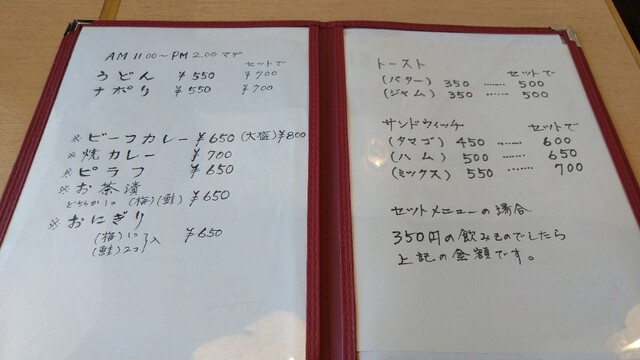 AM 11.00～PM 2.00マデ
セットで
うどん ¥550 ¥700
ナポリ ¥550 ¥700
※ビーフカレー ¥650 (大盛)¥800
※焼カレー ¥700
※ピラフ ¥650
※お茶漬 ¥650
どちらか1つ (梅)(鮭)
※おにぎり
(梅)1コ
(鮭)2コ 入 ¥650
トースト セットで
(バター) 350 …… 500
(ジャム) 350 …… 500
サンドウィッチ セットで
(タマゴ) 450 …… 600
(ハム) 500 …… 650
(ミックス) 550 …… 700
セットメニューの場合
350円の飲みものでしたら
上記の金額です。